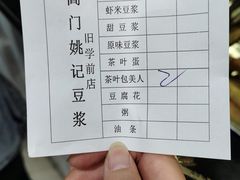 阊门姚记豆浆
旧学前店
虾米豆浆
甜豆浆
原味豆浆
茶叶蛋
茶叶包美人
豆腐花
粥
油条